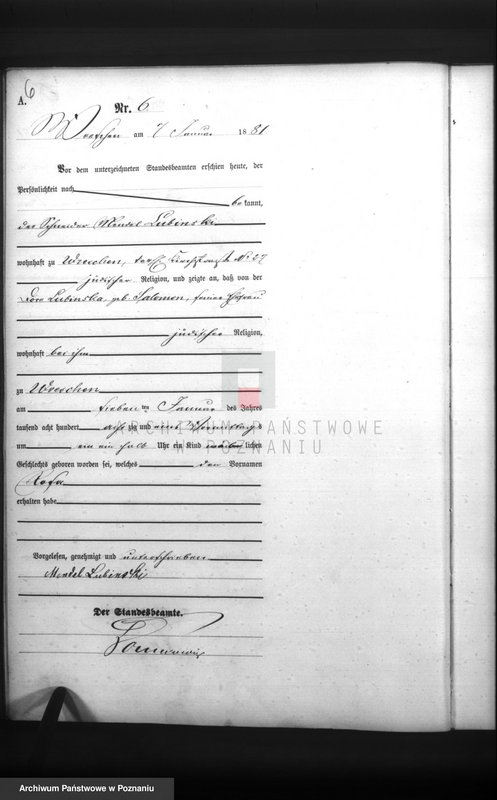 6
A.
Nr. 6
Wreschen am 7 Januar 1881
Vor dem unterzeichneten Standesbeamten erschien heute, der
Persönlichkeit nach
bekannt,
der Schneider Mendel Lubinski
wohnhaft zu Wreschen, No 27
jüdischer Religion, und zeigte an, daß von der
Dora Lubinska, geb. Salomon, seiner Ehefrau
jüdischer Religion,
wohnhaft bei ihm
zu Wreschen
am sieben ten Januar des Jahres
tausend acht hundert achtzig und eins Vormittags
um ein halb Uhr ein Kind weiblichen
Geschlechts geboren worden sei, welches den Vornamen
Rosa
erhalten habe
Vorgelesen, genehmigt und unterschrieben
Mendel Lubinski
Der Standesbeamte.
ARCHIWUM PAŃSTWOWE
W POZNANIU
Archiwum Państwowe w Poznaniu